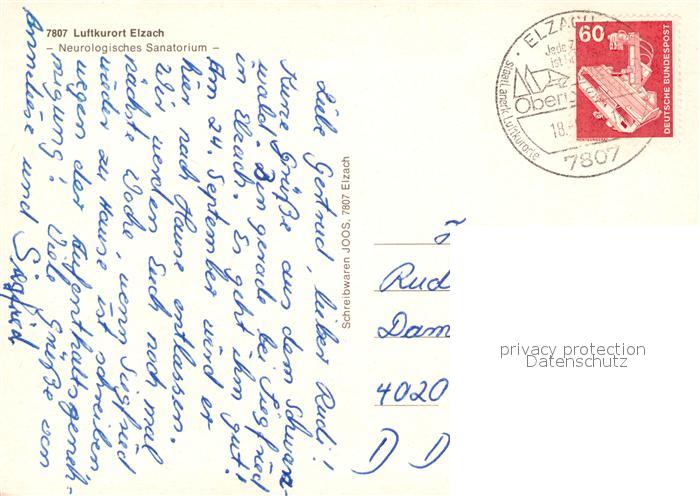 7807 Luftkurort Elzach
– Neurologisches Sanatorium –
Liebe Gertrud, lieber Rudi!
Kurze Grüße aus dem Schwarz-
wald. Bin gerade bei Siegfried
in Elzach. Es geht ihm gut!
Am 24. September wird er
hier nach Hause entlassen.
Wir werden Euch noch mal
nächste Woche, wenn Siegfried
wieder zu Hause ist schreiben
wegen der Aufenthaltsgeneh-
migung! Viele Grüße von
Anneliese und Siegfried
Schreibwaren JOOS, 7807 Elzach
ELZACH
Jede
ist
Ober
18.
Staatl. anerk. Luftkurorte
7807
60
DEUTSCHE BUNDESPOST
Rud
Dam
4020
D D
privacy protection
Datenschutz